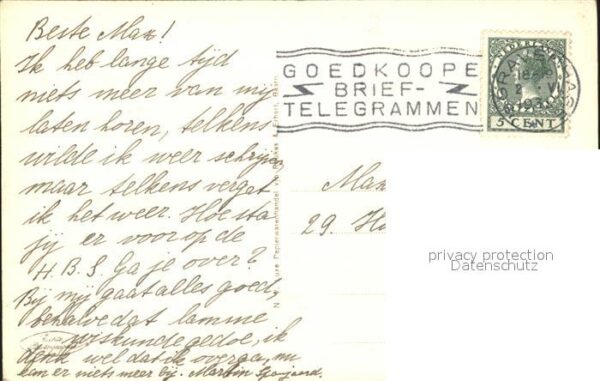 Beste Max!
Ik heb lange tijd
niets meer van mij
laten horen, telkens
wilde ik weer schrijven
maar telkens vergat
ik het weer. Hoe sta
jij er voor op de
H.B.S. Ga je over?
Bij mij gaat alles goed,
behalve dat lamme
wiskundegedoe, ik
denk wel dat ik overga, nu
kan er niets meer bij. Martin
GOEDKOOPE
BRIEF-
TELEGRAMMEN
NEDERLAND
5 CENT
'S GRAVENHAGE
Max
29. Ho
privacy protection
Datenschutz